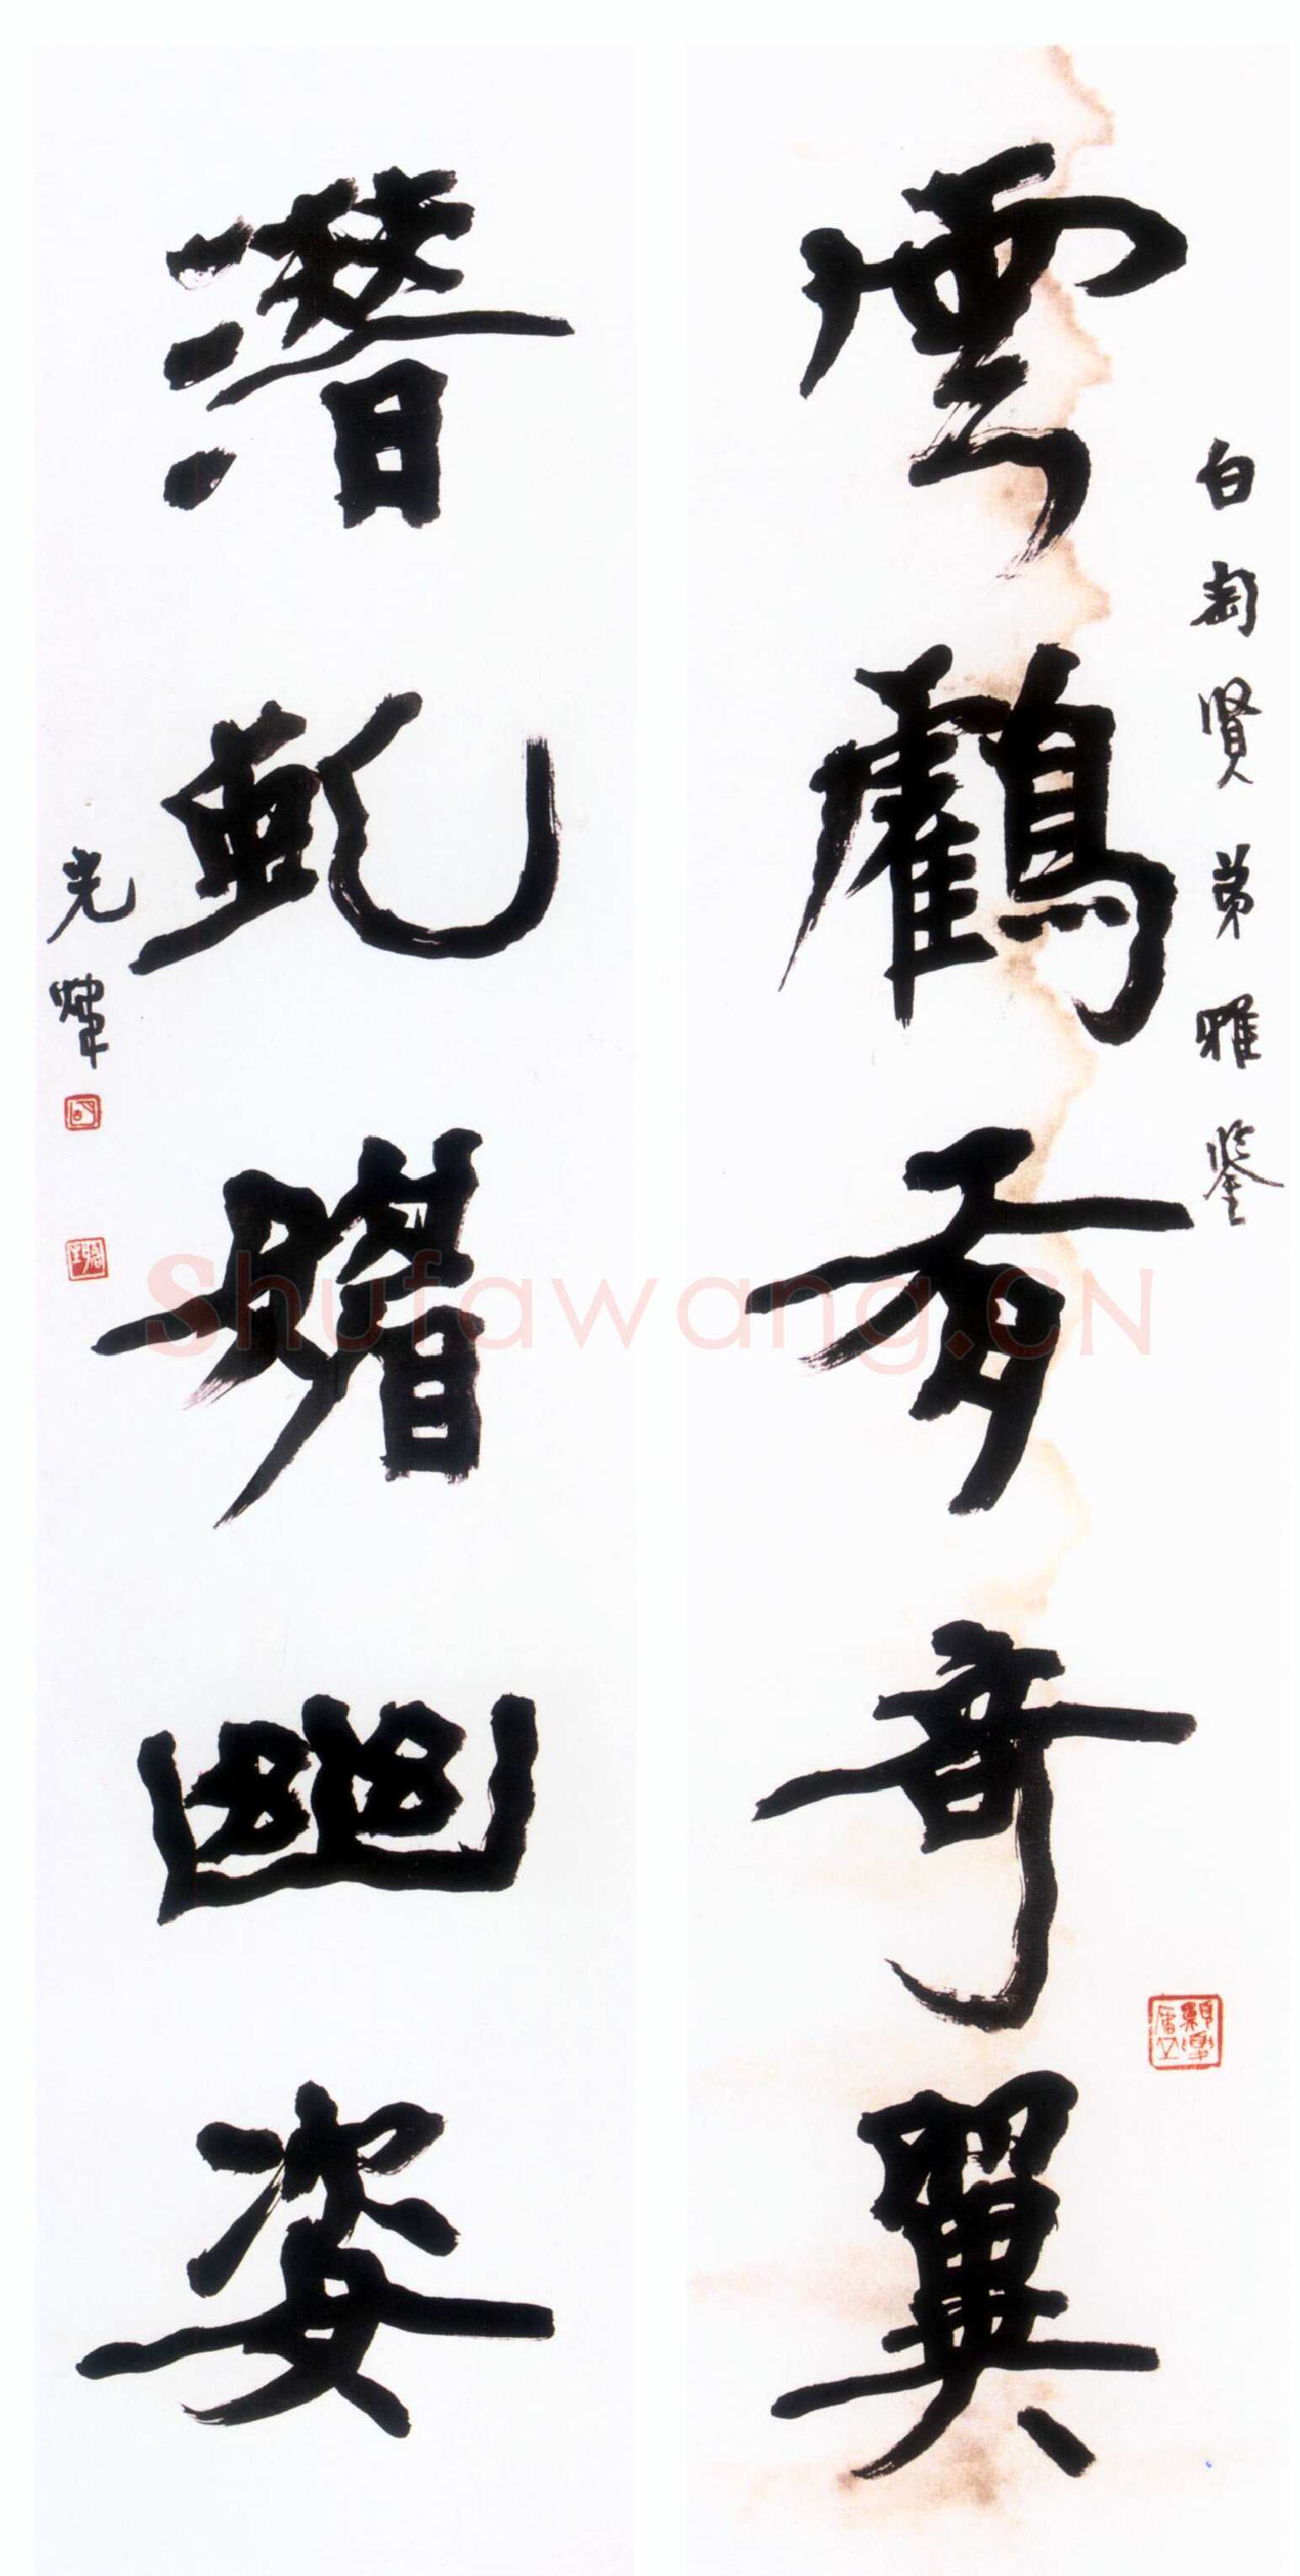 白匋賢弟雅鉴
雲鶴有奇翼
潛虬媚幽姿
光煒
Shufawang.CN